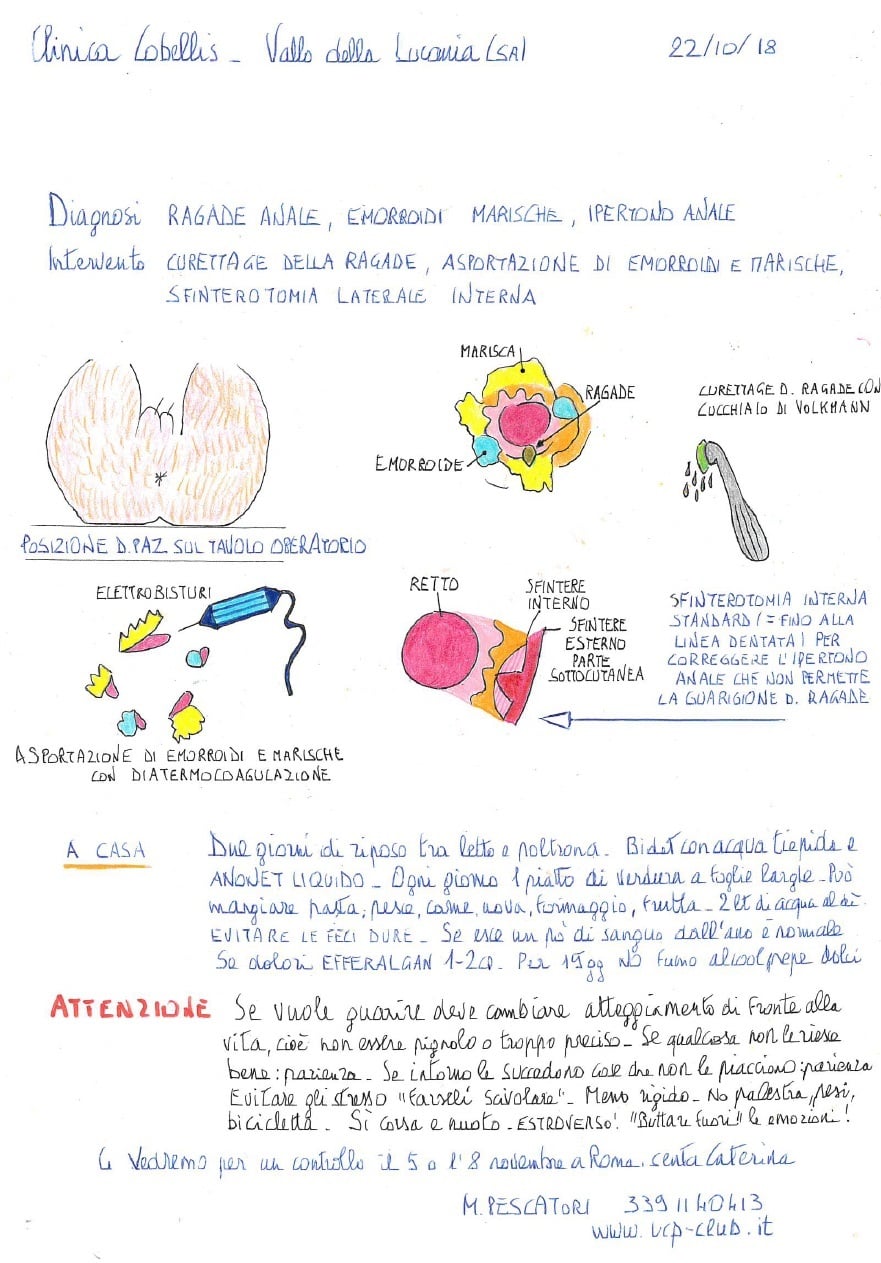 Clinica Cobellis - Vallo della Lucania (SA) 22/10/18
Diagnosi RAGADE ANALE, EMORROIDI MARISCHE, IPERTONO ANALE
Intervento CURETTAGE DELLA RAGADE, ASPORTAZIONE DI EMORROIDI E MARISCHE,
SFINTEROTOMIA LATERALE INTERNA
MARISCA
RAGADE
EMORROIDE
CURETTAGE D. RAGADE CON
CUCCHIAIO DI VOLKMANN
POSIZIONE D. PAZ. SUL TAVOLO OPERATORIO
ELETTROBISTURI
ASPORTAZIONE DI EMORROIDI E MARISCHE
CON DIATERMOCOAGULAZIONE
RETTO
SFINTERE
INTERNO
SFINTERE
ESTERNO
PARTE
SOTTOCUTANEA
SFINTEROTOMIA INTERNA
STANDARD (= FINO ALLA
LINEA DENTATA) PER
CORREGGERE L'IPERTONO
ANALE CHE NON PERMETTE
LA GUARIGIONE D. RAGADE
A CASA Due giorni di riposo tra letto e poltrona - Bidet con acqua tiepida e
ANONET LIQUIDO - Ogni giorno 1 piatto di verdura a foglie larghe - Può
mangiare pasta, pesce, carne, uova, formaggio, frutta - 2 lt di acqua al dì.
EVITARE LE FECI DURE - Se esce un pò di sangue dall'ano è normale
Se dolori EFFERALGAN 1-2 cp. Per 15 gg NO fumo alcool pepe dolci
ATTENZIONE Se vuole guarire deve cambiare atteggiamento di fronte alla
vita, cioè non essere pignolo o troppo preciso - Se qualcosa non le riesce
bene: pazienza - Se intorno le succedono cose che non le piacciono: pazienza
Evitare gli stress "Farseli scivolare" - Meno rigido - No palestra, pesi,
bicicletta - Sì corsa e nuoto - ESTROVERSO! "Buttare fuori" le emozioni!
Ci Vedremo per un controllo il 5 o l'8 novembre a Roma, santa Caterina
M. PESCATORI 339 1140413
www.ucp-club.it